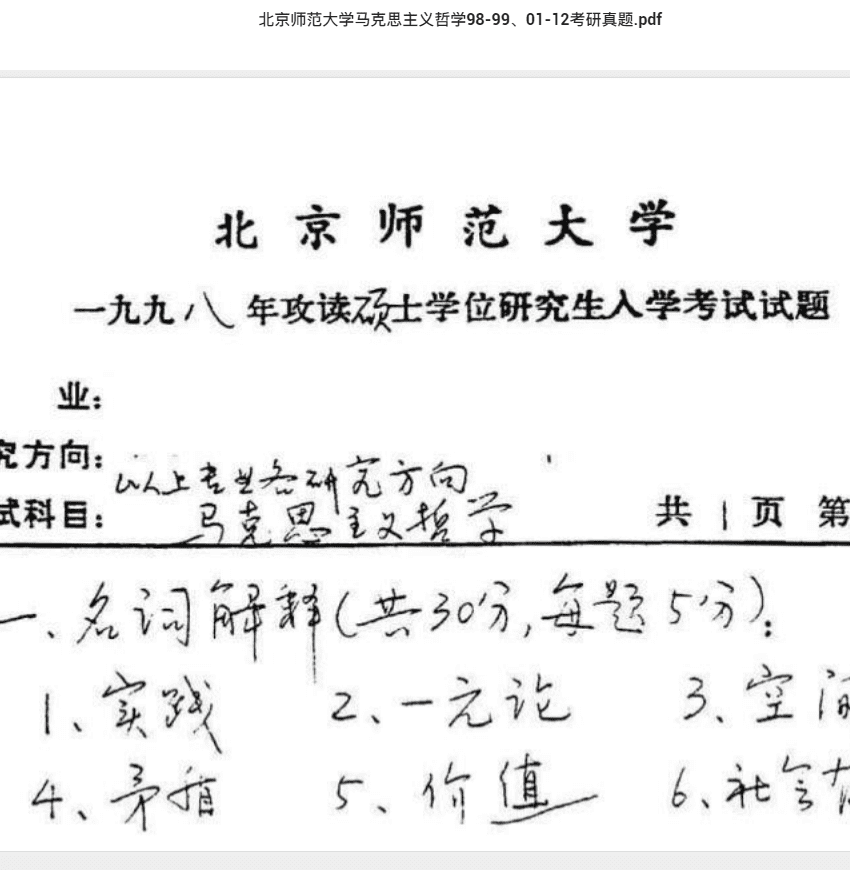 北京师范大学马克思主义哲学98-99、01-12考研真题.pdf
北京师范大学
一九九八年攻读硕士学位研究生入学考试试题
业：
究方向：以上专业各研究方向
试科目：马克思主义哲学 共1页 第
一、名词解释（共30分，每题5分）：
1、实践 2、一元论 3、空间
4、矛盾 5、价值 6、社会